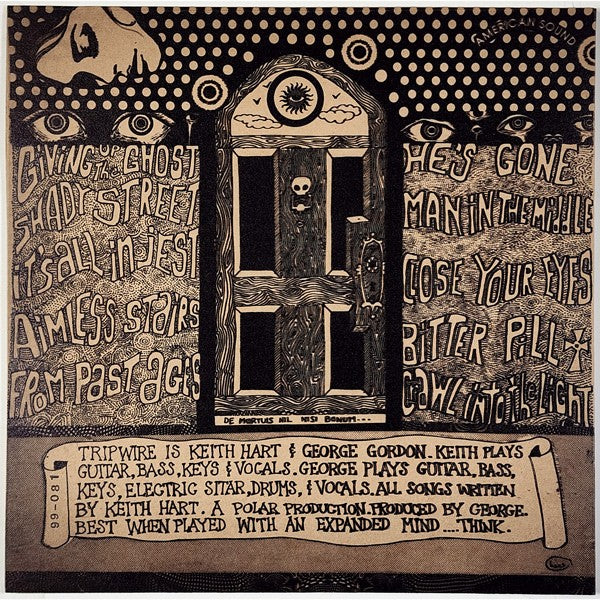 AMERICAN SOUND
GIVING UP the GHOST
SHADY STREET
it's all in jest
AiMLESS Stairs
FROM PAST AGES
HE'S GONE
MAN iN THE MiDDLE
CLOSE YOUR EYES
BiTTER PiLL
CaWL iNto the LIGHT
DE MORTUIS NIL NISI BONUM---
TRIPWIRE IS KEITH HART & GEORGE GORDON. KEITH PLAYS
GUITAR, BASS, KEYS & VOCALS. GEORGE PLAYS GUITAR, BASS,
KEYS, ELECTRIC SITAR, DRUMS, & VOCALS. ALL SONGS WRITTEN
BY KEITH HART. A POLAR PRODUCTION. PRODUCED BY GEORGE.
BEST WHEN PLAYED WITH AN EXPANDED MIND .... THINK.